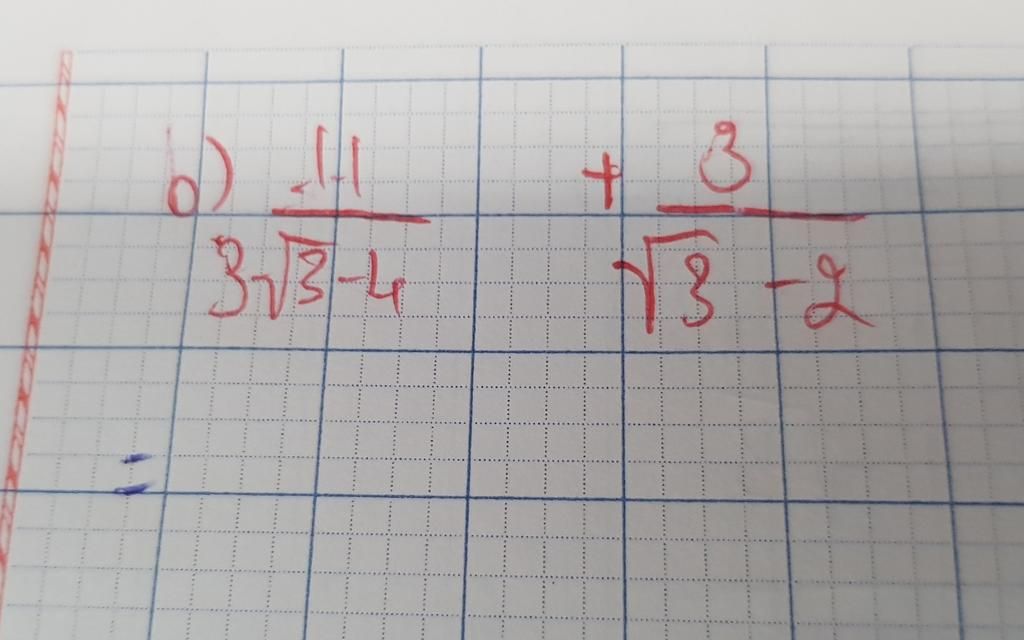 b) 11/(3√3-4) + 3/(√3-2)
=